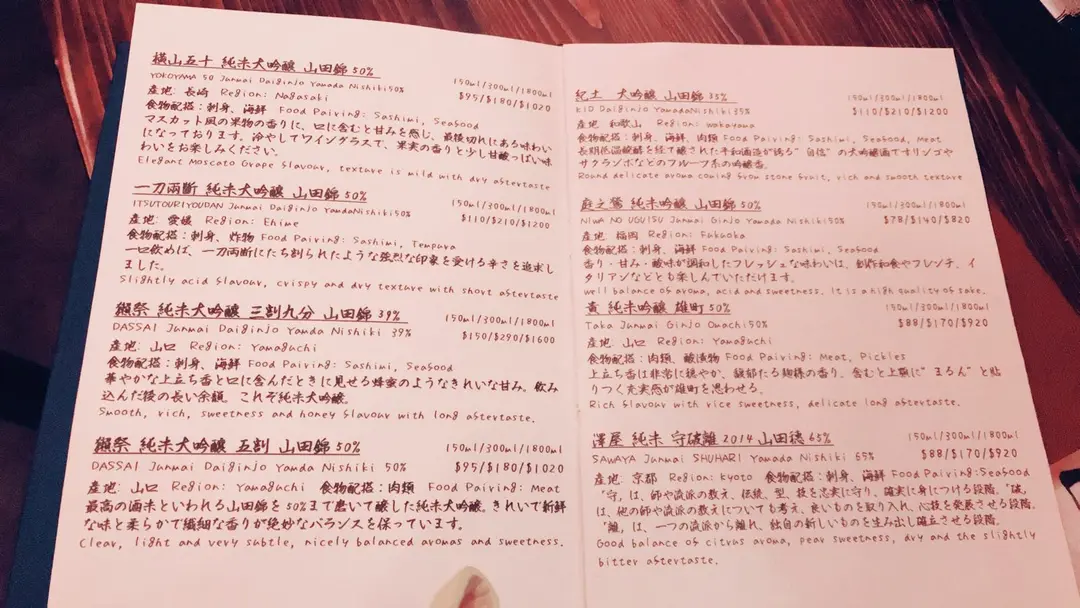 横山五十 純米大吟醸 山田錦 50%
YOKOYAMA 50 Junmai Daiginjo Yamada Nishiki 50%
150ml/300ml/1800ml
産地: 長崎 Region: Nagasaki
$95/$180/$1020
食物配搭:刺身、海鮮 Food Pairing: Sashimi, Seafood
マスカット風の果物の香りに、口に含むと甘みを感じ、最後切れにある味わい
になっております。冷やしてワイングラスで、果実の香りと少し甘酸っぱい味
わいをお楽しみください。
Elegant Moscato Grape flavour, texture is mild with dry aftertaste
一刀兩斷 純米大吟醸 山田錦 50%
ITSUTOURIYOUDAN Junmai Daiginjo YamdaNishiki50%
150ml/300ml/1800ml
産地: 愛媛 Region: Ehime
$110/$210/$1200
食物配搭:刺身、炸物 Food Pairing: Sashimi, Tempura
一口飲めば、一刀両断にたち割られたような強烈な印象を受ける辛さを追求し
ました。
Slightly acid flavour, crispy and dry texture with short aftertaste
獺祭 純米大吟醸 三割九分 山田錦 39%
DASSAI Junmai Daiginjo Yamda Nishiki 39%
150ml/300ml/1800ml
産地: 山口 Region: Yamaguchi
$150/$290/$1600
食物配搭:刺身、海鮮 Food Pairing: Sashimi, Seafood
華やかな上立ち香と口に含んだときに見せる蜂蜜のようなきれいな甘み。飲み
込んだ後の長い余韻。これぞ純米大吟醸。
Smooth, rich, sweetness and honey flavour with long aftertaste.
獺祭 純米大吟醸 五割 山田錦 50%
150ml/300ml/1800ml
DASSAI Junmai Daiginjo Yamda Nishiki 50%
$95/$180/$1020
産地: 山口 Region: Yamaguchi 食物配搭:肉類 Food Pairing: Meat
最高の酒米といわれる山田錦を50%まで磨いて醸した純米大吟醸。きれいで新鮮
な味と柔らかで繊細な香りが絶妙なバランスを保っています。
Clear, light and very subtle, nicely balanced aromas and sweetness.
紀土 大吟醸 山田錦 35%
150ml/300ml/1800ml
KID Daiginjo YamadaNishiki35%
$110/$210/$1200
産地: 和歌山 Region: wakayama
食物配搭:刺身、海鮮、肉類 Food Pairing: Sashimi, Seafood, Meat
長期低温醗酵を経て醸された平和酒造が誇る"自信"の大吟醸酒ですリンゴや
サクランボなどのフルーツ系の吟醸香。
Round delicate aroma coming from stone fruit, rich and smooth texture
庭之鶯 純米大吟醸 山田錦 50%
150ml/300ml/1800ml
NIWA NO UGUISU Junmai Ginjo Yamada Nishiki50%
$78/$140/$820
産地: 福岡 Region: Fukuoka
食物配搭:刺身、海鮮 Food Pairing: Sashimi, Seafood
香り・甘み・酸味が調和したフレッシュな味わいは、創作和食やフレンチ、イ
タリアンなどとも楽しんでいただけます。
well balance of aroma, acid and sweetness. It is a high quality of sake.
貴 純米吟醸 雄町 50%
150ml/300ml/1800ml
Taka Junmai Ginjo Omachi50%
$88/$170/$920
産地: 山口 Region: Yamaguchi
食物配搭:肉類、醸漬物 Food Pairing: Meat, Pickles
上立ち香は非常に穏やか、馥郁たる麹様の香り。含むと上顎に"まるん"と貼
りつく充実感が雄町を思わせる。
Rich flavour with rice sweetness, delicate long aftertaste.
澤屋 純米 守破離 2014 山田穂 65%
150ml/300ml/1800ml
SAWAYA Junmai SHUHARI Yamada Nishiki 65%
$88/$170/$920
産地: 京都 Region: Kyoto 食物配搭:刺身、海鮮 Food Pairing:Seafood
"守"は、師や流派の教え、伝統、型、技を忠実に守り、確実に身につける段階。"破"
は、他の師や流派の教えについても考え、良いものを取り入れ、心技を発展させる段階。
"離"は、一つの流派から離れ、独自の新しいものを生み出し確立させる段階。
Good balance of citrus aroma, pear sweetness, dry and the slightly
bitter aftertaste.